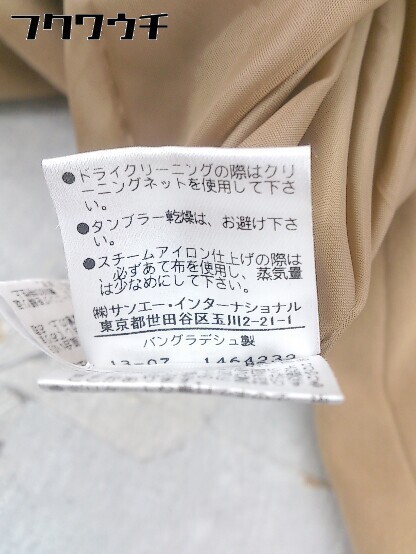 フクワウチ
●ドライクリーニングの際はクリ
ーニングネットを使用して下さ
い。
●タンブラー乾燥は、お避け下さ
い。
●スチームアイロン仕上げの際は
必ずあて布を使用し、蒸気量
は少なめにして下さい。
㈱サンエー・インターナショナル
東京都世田谷区玉川2-21-1
バングラデシュ製
13-07 1464232